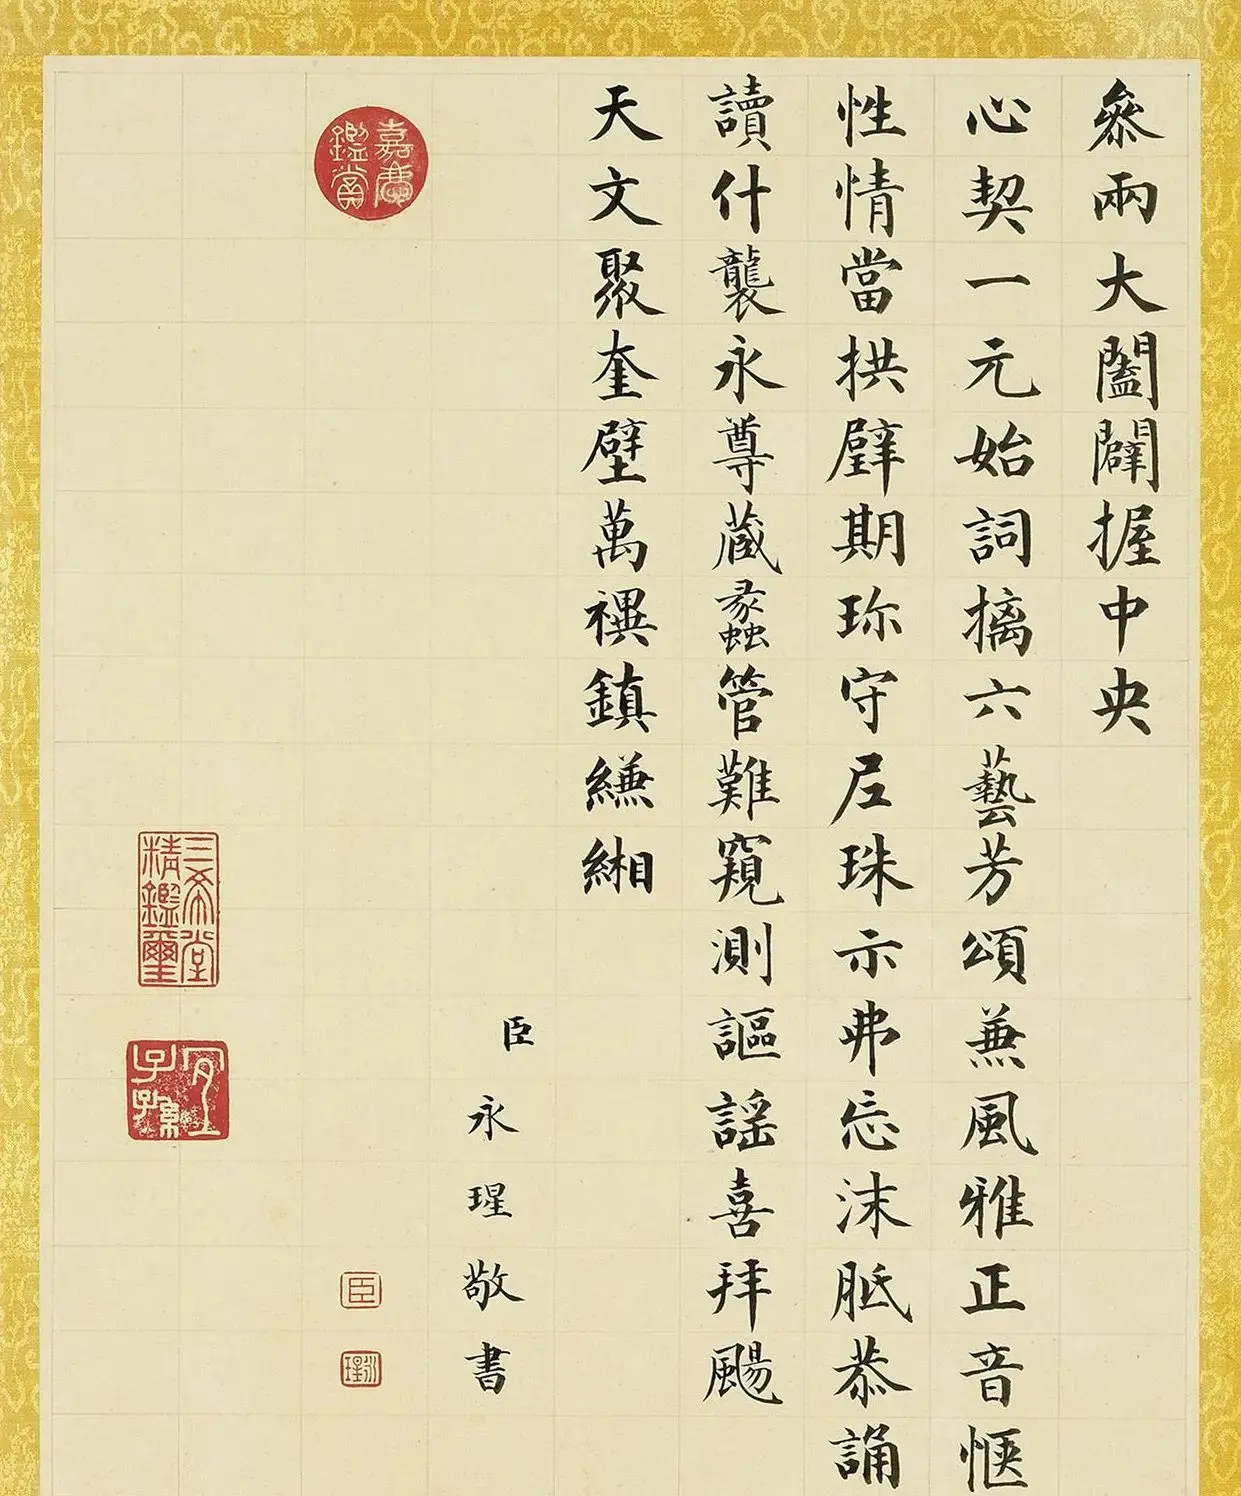 叅兩大闔闢握中央
心契一元始詞摛六藝芳頌兼風雅正音愜
性情當拱璧期珎守尼珠示弗忘沫胝恭誦
讀什襲永尊藏蠡管難窺測謳謠喜拜颺
天文聚奎壁萬禩鎮縑緗
臣永瑆敬書
嘉慶鑑賞
臣
永瑆
三希堂精鑑璽
宜子孫